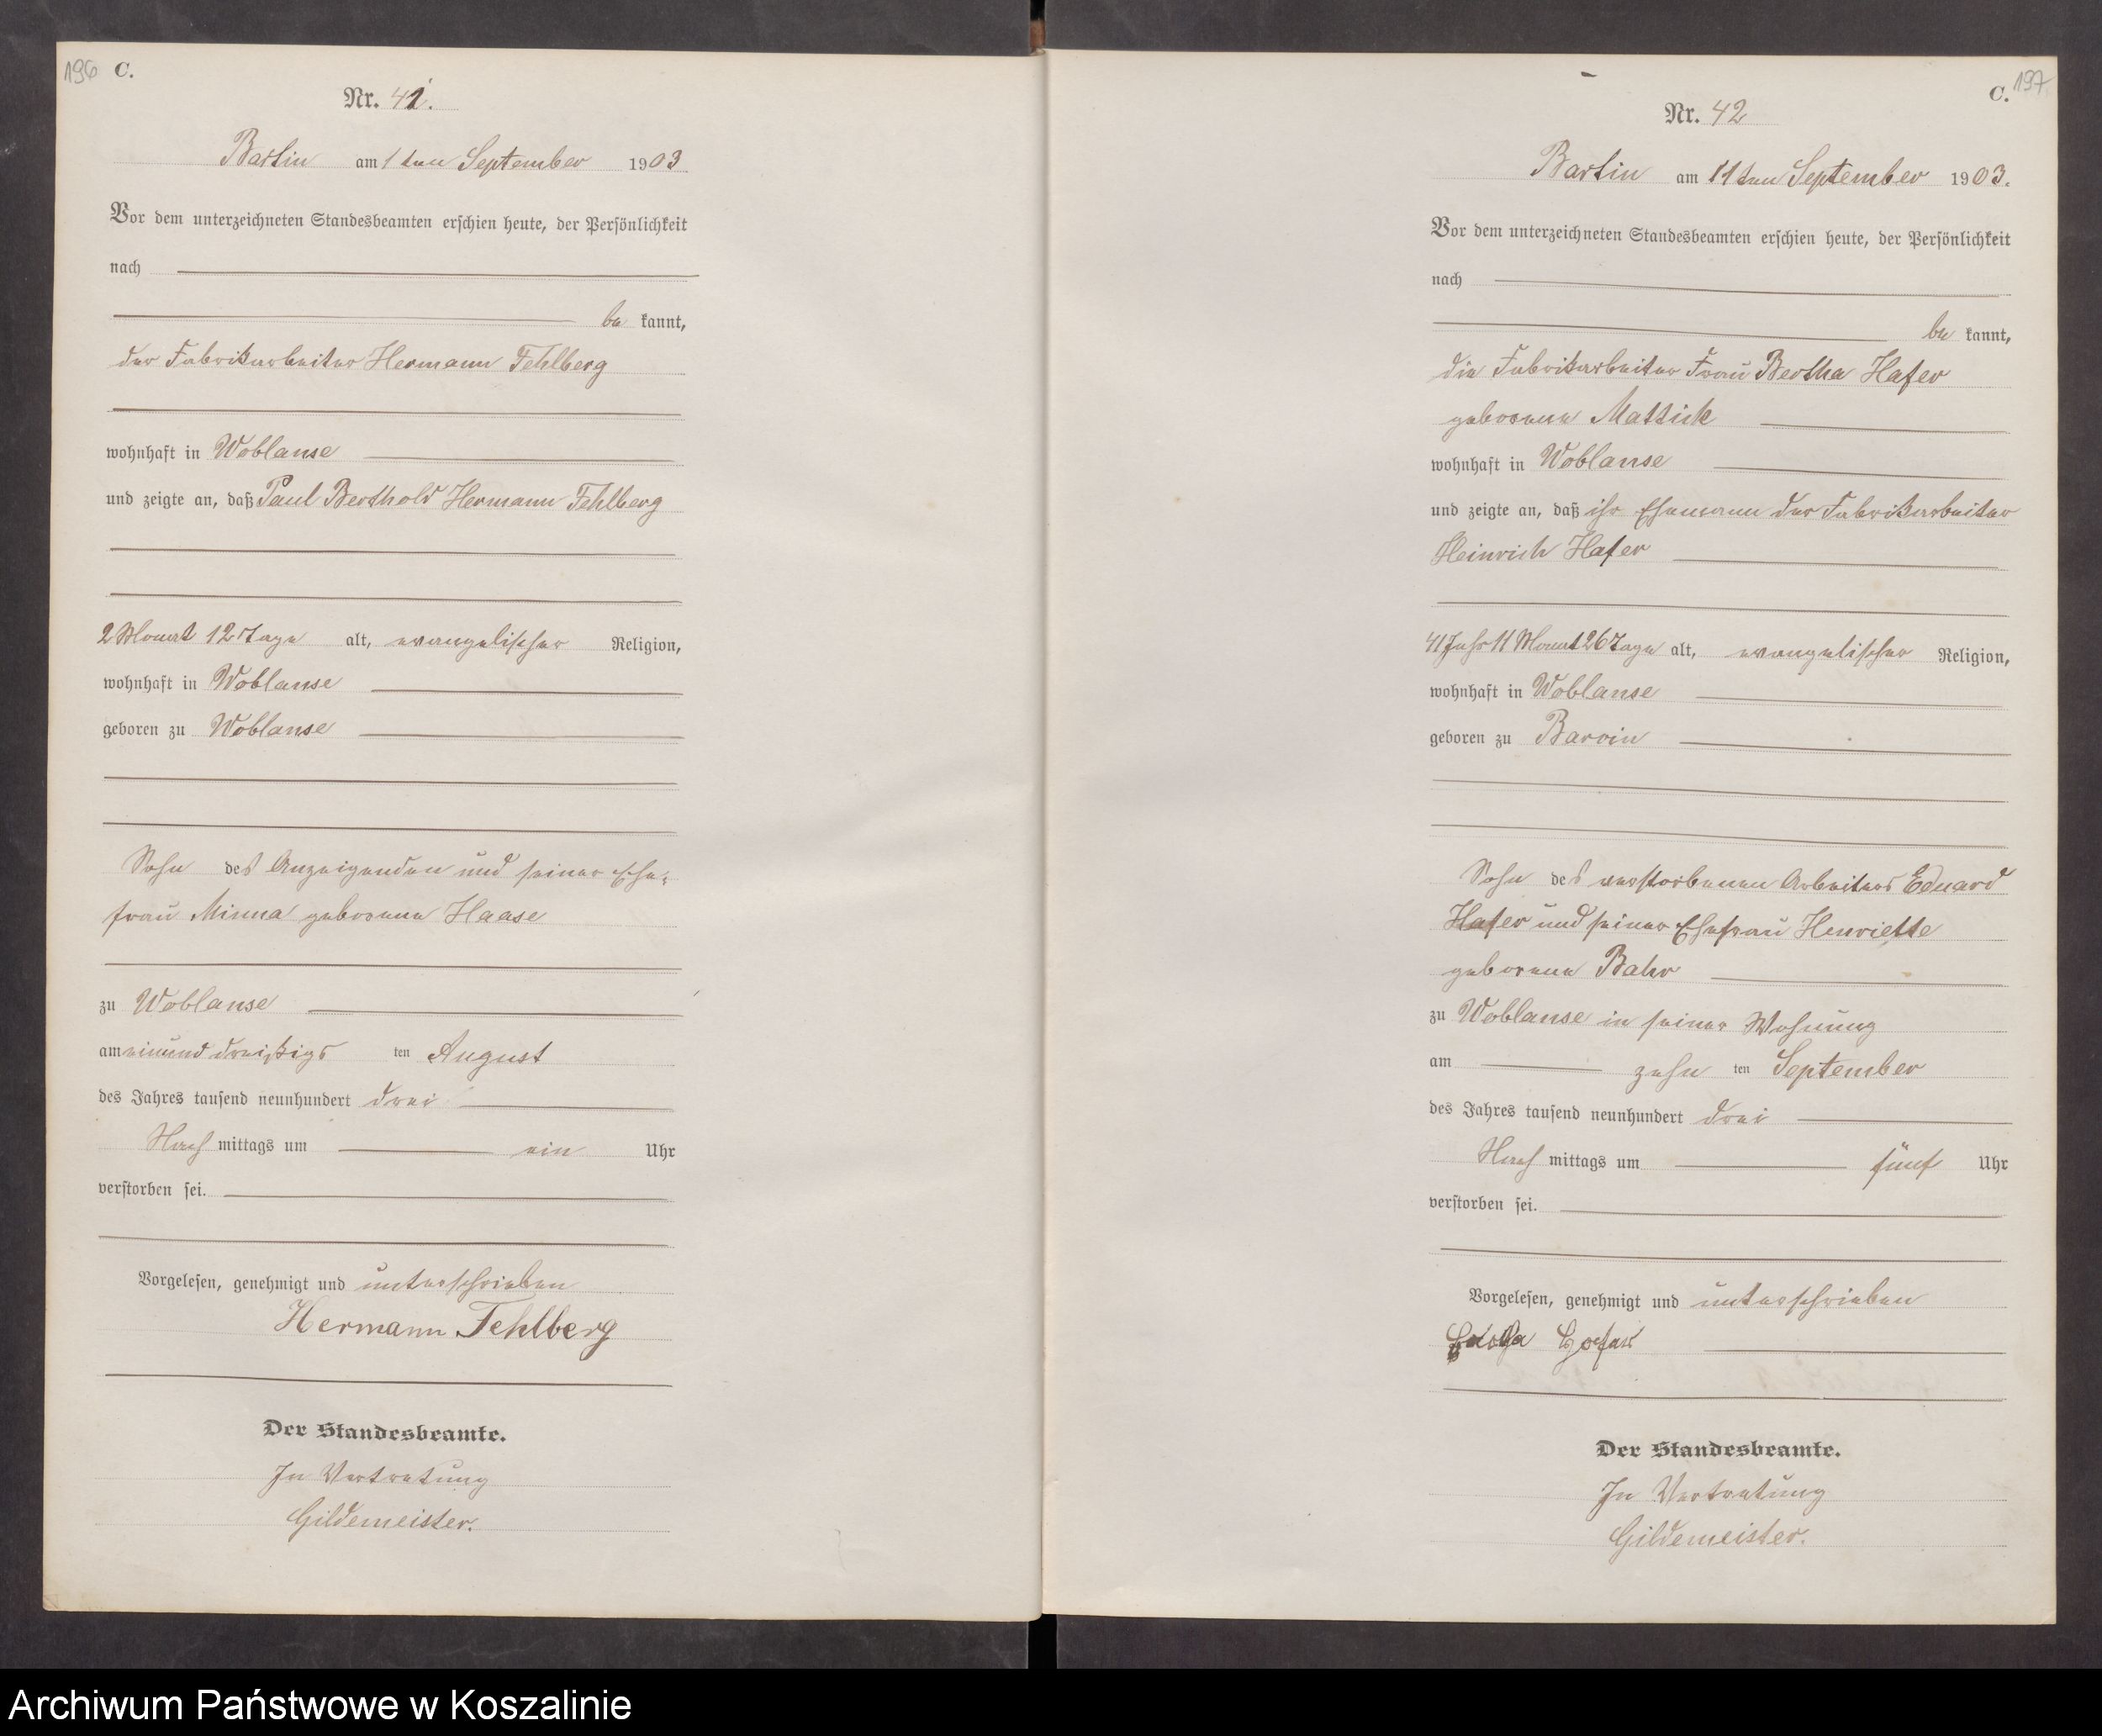 196 C.
Nr. 41.
Bartin am 1ten September 1903
Vor dem unterzeichneten Standesbeamten erschien heute, der Persönlichkeit
nach
be kannt,
der Fabrikarbeiter Hermann Fehlberg
wohnhaft in Woblanse
und zeigte an, daß Paul Berthold Hermann Fehlberg
2 Monat 12 Tage alt, evangelischer Religion,
wohnhaft in Woblanse
geboren zu Woblanse
Sohn des Anzeigenden und seiner Ehe-
frau Minna geborene Haase
zu Woblanse
am einund dreißigs ten August
des Jahres tausend neunhundert drei
Nach mittags um ein Uhr
verstorben sei.
Vorgelesen, genehmigt und unterschrieben
Hermann Fehlberg
Der Standesbeamte.
In Vertretung
Gildemeister.
C. 197
Nr. 42
Bartin am 11ten September 1903.
Vor dem unterzeichneten Standesbeamten erschien heute, der Persönlichkeit
nach
be kannt,
die Fabrikarbeiter Frau Bertha Hafer
geborene Mattick
wohnhaft in Woblanse
und zeigte an, daß ihr Ehemann der Fabrikarbeiter
Heinrich Hafer
41 Jahr 11 Monat 26 Tage alt, evangelischer Religion,
wohnhaft in Woblanse
geboren zu Barvin
Sohn des verstorbenen Arbeiters Eduard
Hafer und seiner Ehefrau Henriette
geborene Bahr
zu Woblanse in seiner Wohnung
am zehn ten September
des Jahres tausend neunhundert drei
Nach mittags um fünf Uhr
verstorben sei.
Vorgelesen, genehmigt und unterschrieben
Der Standesbeamte.
In Vertretung
Gildemeister.
Archiwum Państwowe w Koszalinie